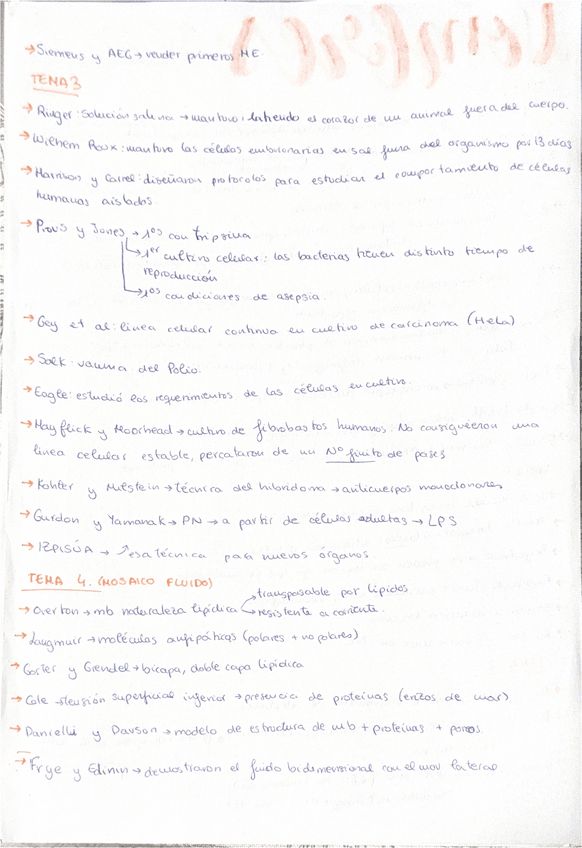 →Siemens y AEG→vender primeros ME.
TEMA 3
→Ringer: Solución salina →mantuvo latiendo el corazón de un animal fuera del cuerpo.
→Wilhem Roux: mantuvo las células embrionarias en sal fuera del organismo por 13 días
→Harrison y Carrel: diseñaron protocolos para estudiar el comportamiento de células
humanas aisladas.
→Rous y Jones →1ºs con tripsina
→1er cultivo celular: las bacterias tienen distinto tiempo de
reproducción
→1ºs condiciones de asepsia.
→Gey et al: línea celular continua en cultivo de carcinoma (Hela)
→Salk: vacuna del Polio.
→Eagle: estudió los requerimientos de las células en cultivo.
→Hayflick y Moorhead→cultivo de fibrobastos humanos. No consiguieron una
linea celular estable, percataron de un Nº finito de pases
→Kohler y Milstein→técnica del hibridoma→anticuerpos monoclonares
→Gurdon y Yamanak→PN→a partir de células adultas→
→IZPISÚA→ esa técnica para nuevos órganos
TEMA 4. (MOSAICO FLUIDO)
→Overton→mb naturaleza lipídica →transpasable por lípidos
→resistente a corriente.
→Langmuir→moléculas anfipáticas (polares + no polares)
→Gorter y Grendel→bicapa, doble capa lipídica
→Cole→tensión superficial inferior→presencia de proteínas (erizos de mar)
→Danielli y Davson→modelo de estructura de mb + proteínas + poros.
→Frye y Edinin→demostraron el fluido bidimensional con el mov lateral